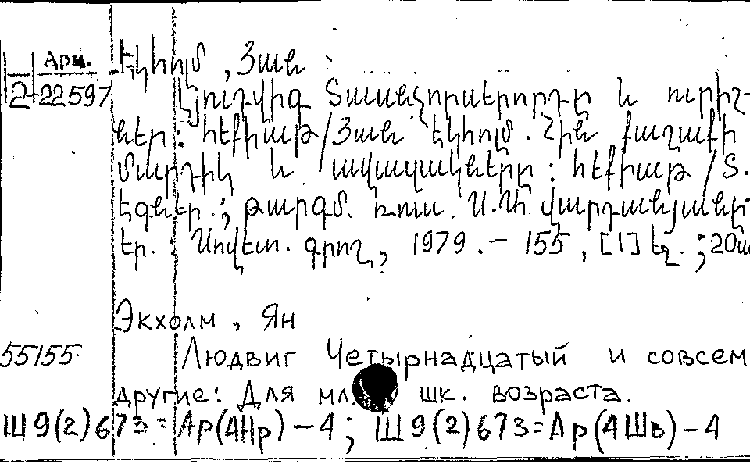 Арм. Էկհոլմ, Յան
2 22597 Լյուդվիգ Տասնչորսերորդը և ուրիշ-
ներ: հեքիաթ/Յան Էկհոլմ. Հին քաղաքի
մարդիկ և ավազակները: հեքիաթ/Տ.
Էգներ.; թարգմ. ռուս. Ա.Մ Վարդանյանի
Եր.: Սովետ. գրող, 1979.- 155, [1] էջ.; 20սմ
Экхолм, Ян
55155 Людвиг Четырнадцатый и совсем
другие: Для мл. шк. возраста.
Ш9(2)673=Ар(4Нр)-4; Ш9(2)673=Ар(4Шв)-4